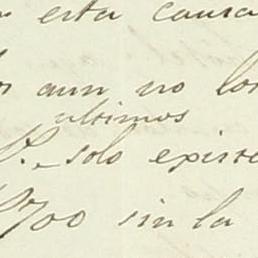 esta causa
aun no los
ultimos
solo existe
700 sin la